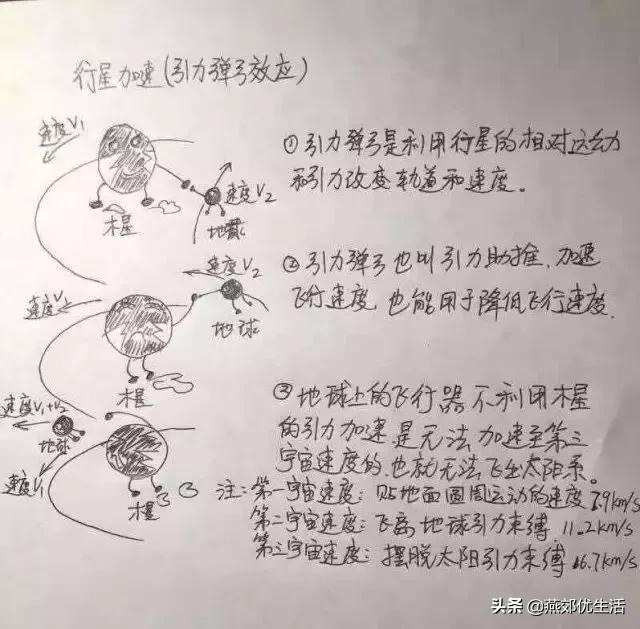 行星加速(引力弹弓效应)
速度V₁
①引力弹弓是利用行星的相对运动
和引力改变轨道和速度。
速度V₂
地球
木星
速度V₂
②引力弹弓也叫引力助推,加速
飞行速度,也能用于降低飞行速度.
速度V₁
地球
木星
③地球上的飞行器不利用木星
的引力加速是无法加速至第三
宇宙速度的,也就无法飞出太阳系。
速度V₁+V₂
地球
速度V₁
木星
注:第一宇宙速度:贴地面圆周运动的速度7.9km/s
第二宇宙速度:飞离地球引力束缚,11.2km/s
第三宇宙速度:摆脱太阳引力束缚16.7km/s
头条@燕郊优生活